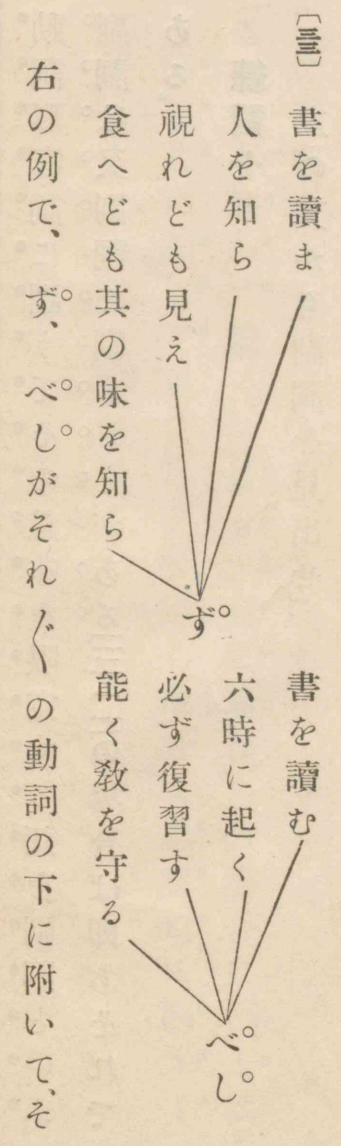 〔三三〕
書を讀ま
人を知ら
視れども見え
食へども其の味を知ら
ず。
書を讀む
六時に起く
必ず復習す
能く敎を守る
べし。
右の例で、ず、べしがそれ〴〵の動詞の下に附いて、そ